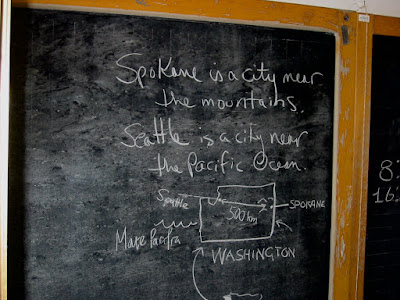 Spokane is a city near
the mountains.
Seattle is a city near
the Pacific Ocean.
Seattle
500 km
SPOKANE
Mare Pacifica
WASHINGTON
8:
16: